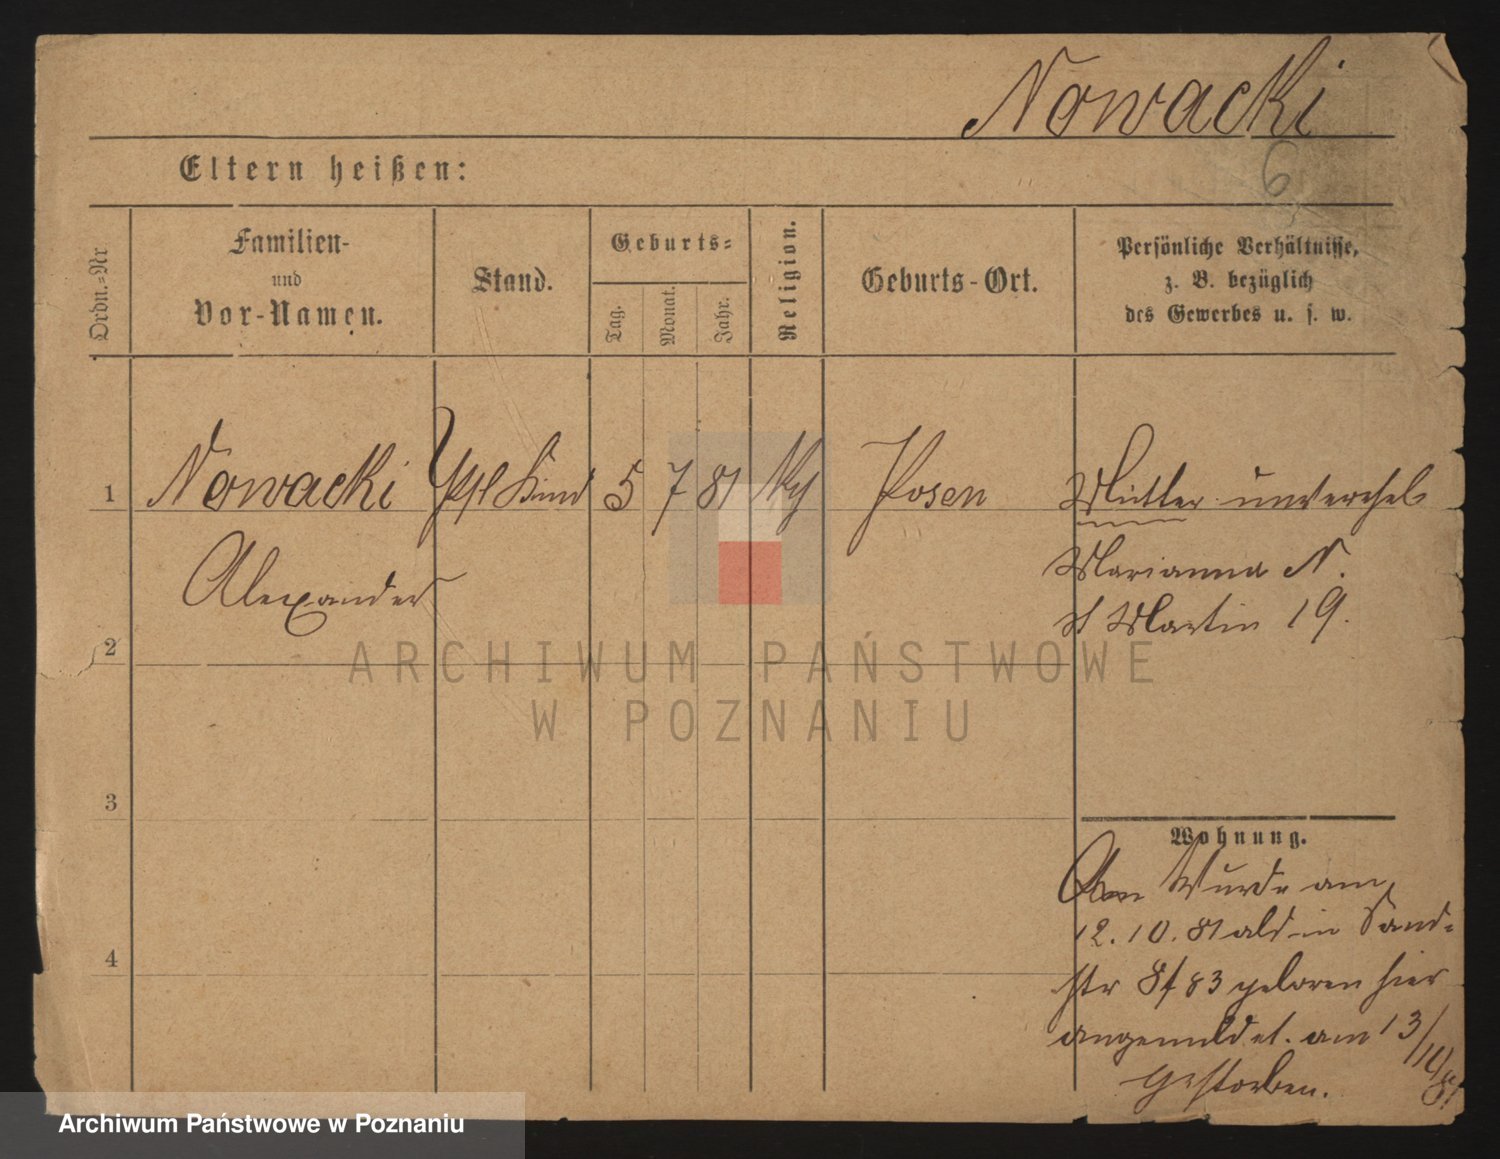 Nowacki
6
Eltern heißen:
Ordn.-Nr
Familien-
und
Vor-Namen.
Stand.
Geburts-
Tag.
Monat.
Jahr.
Religion.
Geburts-Ort.
Persönliche Verhältnisse,
z. B. bezüglich
des Gewerbes u. s. w.
1 Nowacki Kind 5 7 81 Posen Mutter unverehel
Alexander
Marianna N.
St Martin 19.
2
3
4
Wohnung.
wurde am
12. 10. 81 als in Sand-
str 8 geboren hier
angemeldet. am 13/10/81
Gestorben.
ARCHIWUM PAŃSTWOWE
W POZNANIU
Archiwum Państwowe w Poznaniu